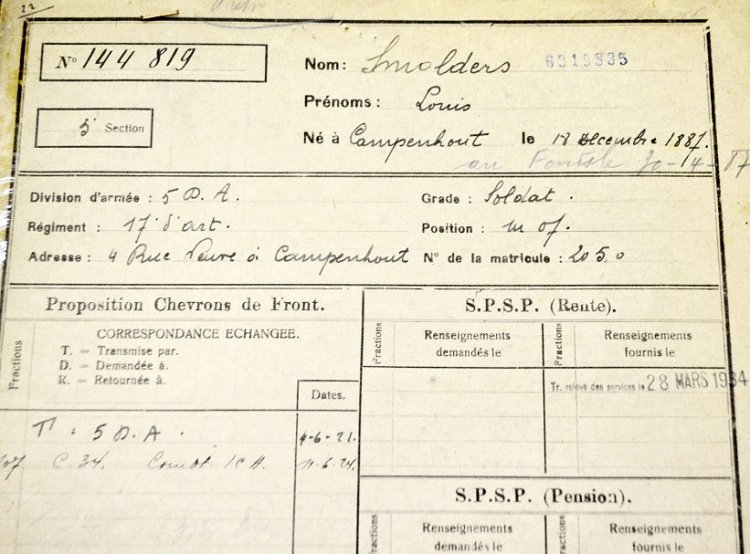 22
Nº 144 819
Nom: Smolders 6319335
Prénoms: Louis
5 Section
Né à Campenhout le 18 décembre 1887.
30-14-
Division d'armée : 5 D.A.
Grade : Soldat.
Régiment : 17 d'art.
Position :
Adresse : 4 Rue Neuve à Campenhout
Nº de la matricule : 2050
Proposition Chevrons de Front.
Fractions
CORRESPONDANCE ECHANGEE.
T. = Transmise par.
D. = Demandée à.
R. = Retournée à.
Dates.
T : 5 D.A.
4-6-21.
C. 34.
11-6-24.
S.P.S.P. (Rente).
Fractions
Renseignements
demandés le
Fractions
Renseignements
fournis le
Tr. relevé des services le 28 MARS 1934
S.P.S.P. (Pension).
Fractions
Renseignements
demandés le
Fractions
Renseignements
fournis le